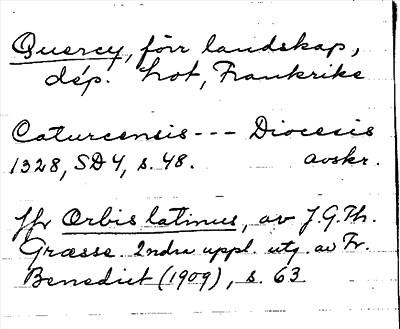 Quercy, förr landskap,
dép. Lot, Frankrike
Caturcensis --- Diocesis
1328, SD4, s. 48. avskr.
Jfr Orbis latinus, av J.G.Th.
Græsse. 2ndra uppl. utg. av Fr.
Benedict (1909), s. 63